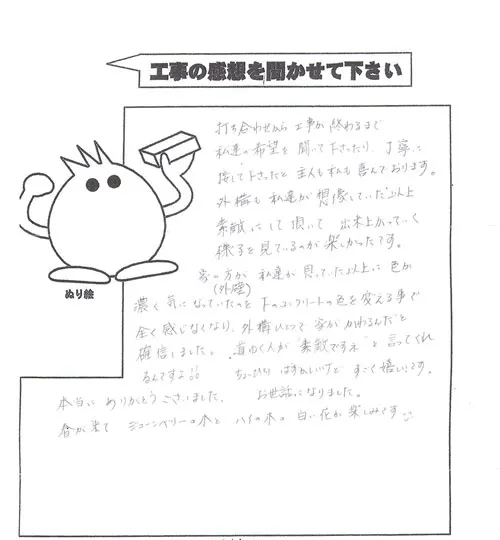 工事の感想を聞かせて下さい
打ち合わせから工事が終わるまで
私達の希望を聞いて下さったり、丁寧に
接して下さったと主人も私も喜んでおります。
外構も私達が想像していた以上
素敵にして頂いて 出来上がっていく
様子を見ているのが楽しかったです。
家の方が私達が思っていた以上に色が
(外壁)
濃く気になっていたのを下のコンクリートの色を変える事で
全く感じなくなり、外構ひとつで家がかわるんだと
確信しました。道ゆく人が"素敵ですネ"と言ってくれ
るんですよ!! ちょっぴりはずかしいけどすごく嬉しいです。
本当にありがとうございました。 お世話になりました。
春が来て ジューンベリーの木と ハナの木の白い花が楽しみです
ぬり絵